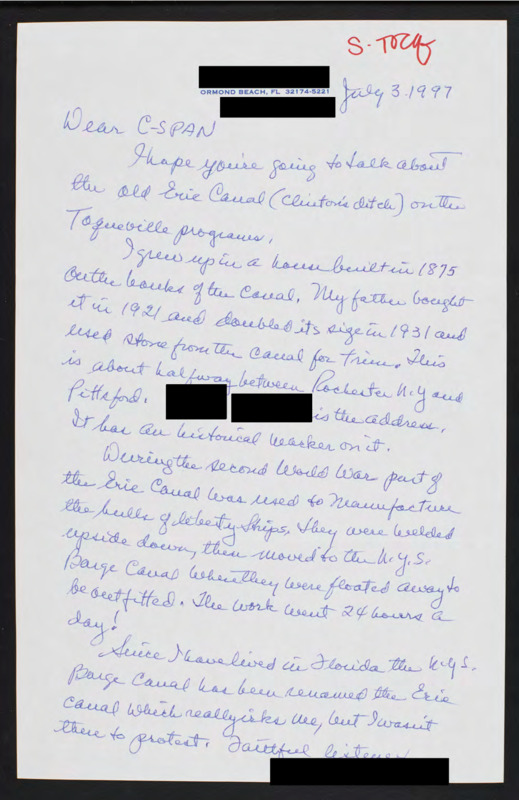 S-TOCQ
ORMOND BEACH, FL 32174-5221
July 3.1997
Dear C-SPAN
I hope you're going to talk about
the old Erie Canal (Clinton's ditch) on the
Toqueville programs.
I grew up in a house built in 1875
on the banks of the Canal. My father bought
it in 1921 and doubled its size in 1931 and
used stone from the canal for trim. This
is about halfway between Rochester N.Y and
Pittsford. is the address.
It has an historical marker on it.
During the second World War part of
the Erie Canal was used to manufacture
the hulls of liberty ships. They were welded
upside down, then moved to the N.Y.S.
Barge Canal when they were floated away to
be outfitted. The work went 24 hours a
day!
Since I have lived in Florida the N.Y.S.
Barge Canal has been renamed the Erie
Canal which really irks me, but I wasn't
there to protest. Faithful listener